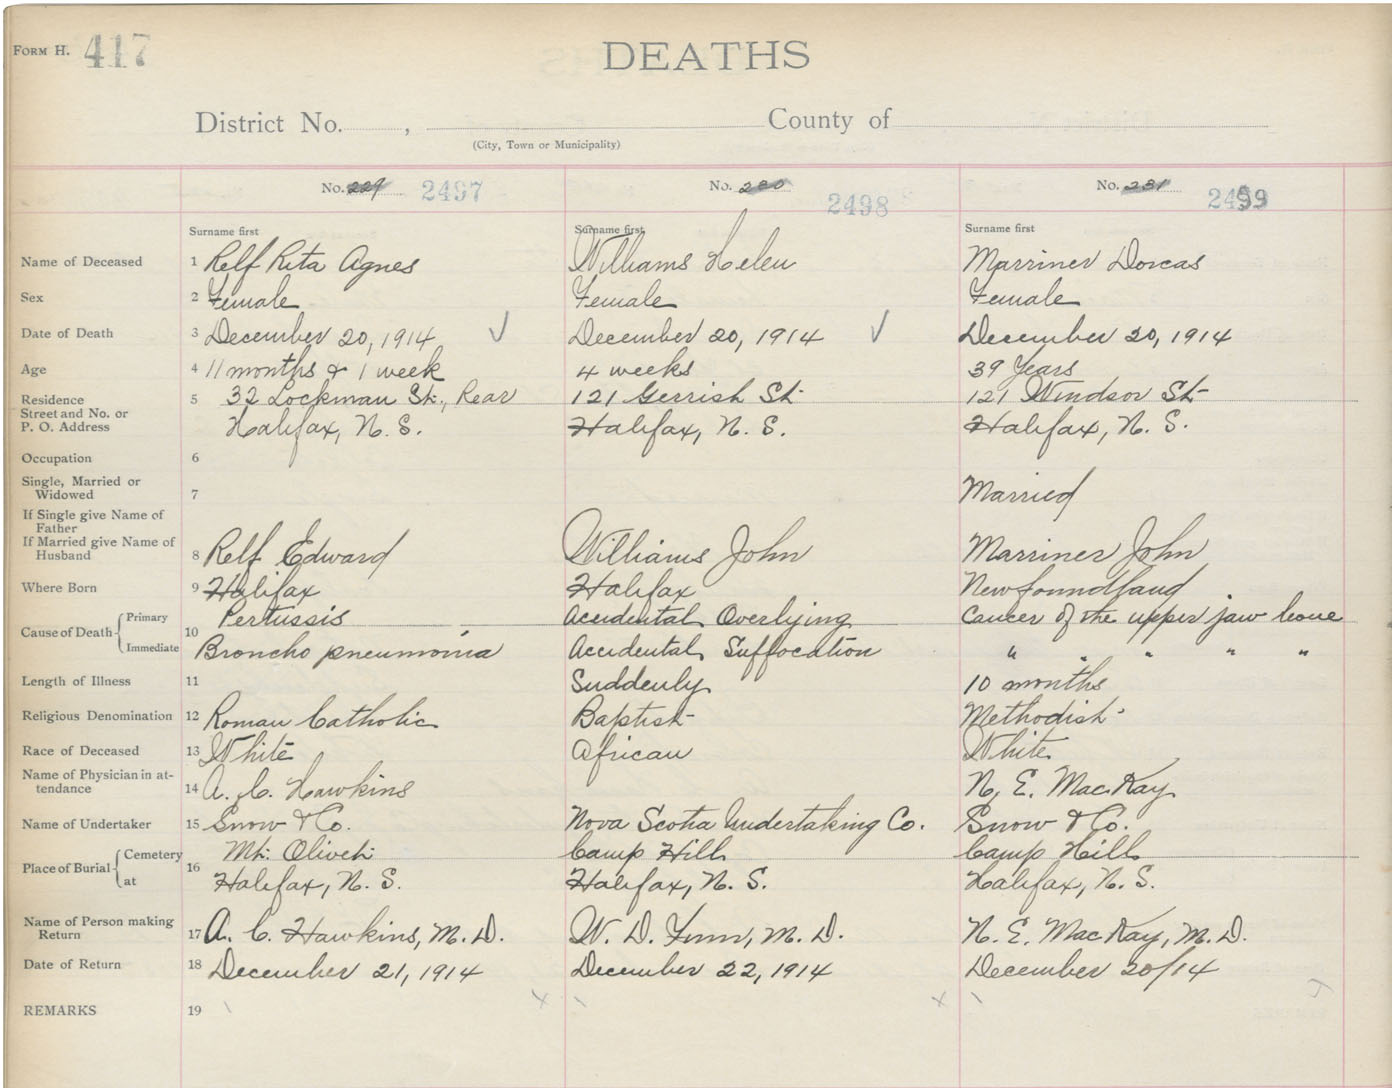 FORM H. 417
DEATHS
District No. , County of
(City, Town or Municipality)
No. 229 2497 No. 230 2498 No. 231 2499
Surname first Surname first Surname first
Name of Deceased 1 Relf Rita Agnes Williams Helen Marriner Dorcas
Sex 2 Female Female Female
Date of Death 3 December 20, 1914 ✓ December 20, 1914 ✓ December 20, 1914
Age 4 11 months & 1 week 4 weeks 39 Years
Residence 5 32 Lockman St., Rear 121 Gerrish St 121 Windsor St
Street and No. or
P. O. Address Halifax, N. S. Halifax, N. S. Halifax, N. S.
Occupation 6
Single, Married or
Widowed 7 Married
If Single give Name of
Father
If Married give Name of
Husband 8 Relf Edward Williams John Marriner John
Where Born 9 Halifax Halifax Newfoundland
Cause of Death 10
Primary Pertussis Accidental Overlying Cancer of the upper jaw bone
Immediate Broncho pneumonia Accidental Suffocation " " " " "
Length of Illness 11 Suddenly 10 months
Religious Denomination 12 Roman Catholic Baptist Methodist
Race of Deceased 13 White African White
Name of Physician in at-
tendance 14 A. C. Hawkins N. E. MacKay
Name of Undertaker 15 Snow & Co. Nova Scotia Undertaking Co. Snow & Co.
Place of Burial 16
Cemetery Mt. Olivet Camp Hill Camp Hill
at Halifax, N. S. Halifax, N. S. Halifax, N. S.
Name of Person making
Return 17 A. C. Hawkins, M. D. W. D. Finn, M. D. N. E. MacKay, M. D.
Date of Return 18 December 21, 1914 December 22, 1914 December 20/14
REMARKS 19